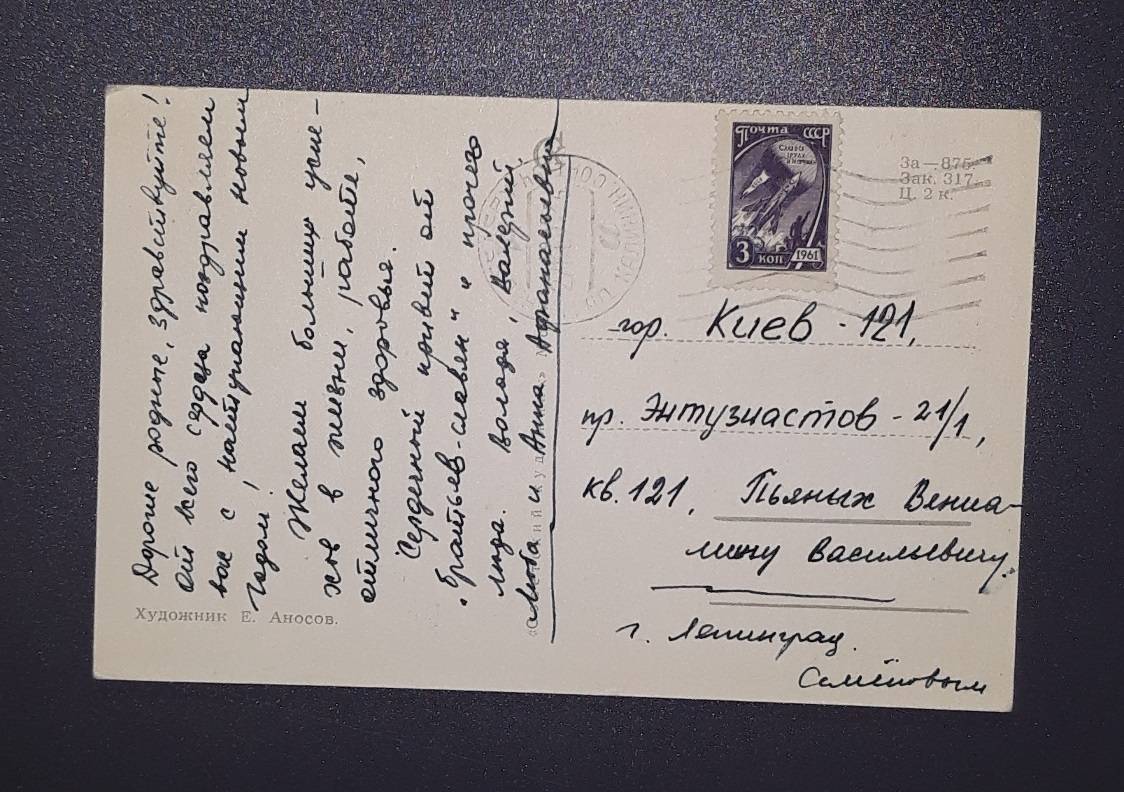 Дорогие родные, здравствуйте!
От всего сердца поздравляем
вас с наступающим новым
годом!
Желаем больших успе-
хов в жизни, работе,
отличного здоровья.
Сердечный привет от
"братьев-славян" и прочего
люда. Володя, Валерий,
Люба и Анна
Художник Е. Аносов.
Почта СССР
Слава
труду
и науке
3 коп 1961
За—875.
Зак. 317.
Ц. 2 к.
гор. Киев - 121,
пр. Энтузиастов - 21/1,
кв. 121, Пьяных Вениа-
мину Васильевичу.
г. Ленинград
Семёновым